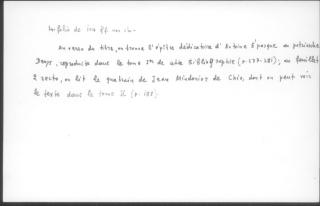 in-folio de 110 ff. non ch.
Au verso du titre, on trouve l'épître dédicatoire d'Antoine Eparque au patriarche
Denys, reproduite dans le tome Ier de cette Bibliographie (p. 277-281); au feuillet
2 recto, on lit le quatrain de Jean Mindonios de Chio, dont on peut voir
le texte dans le tome II (p. 188).